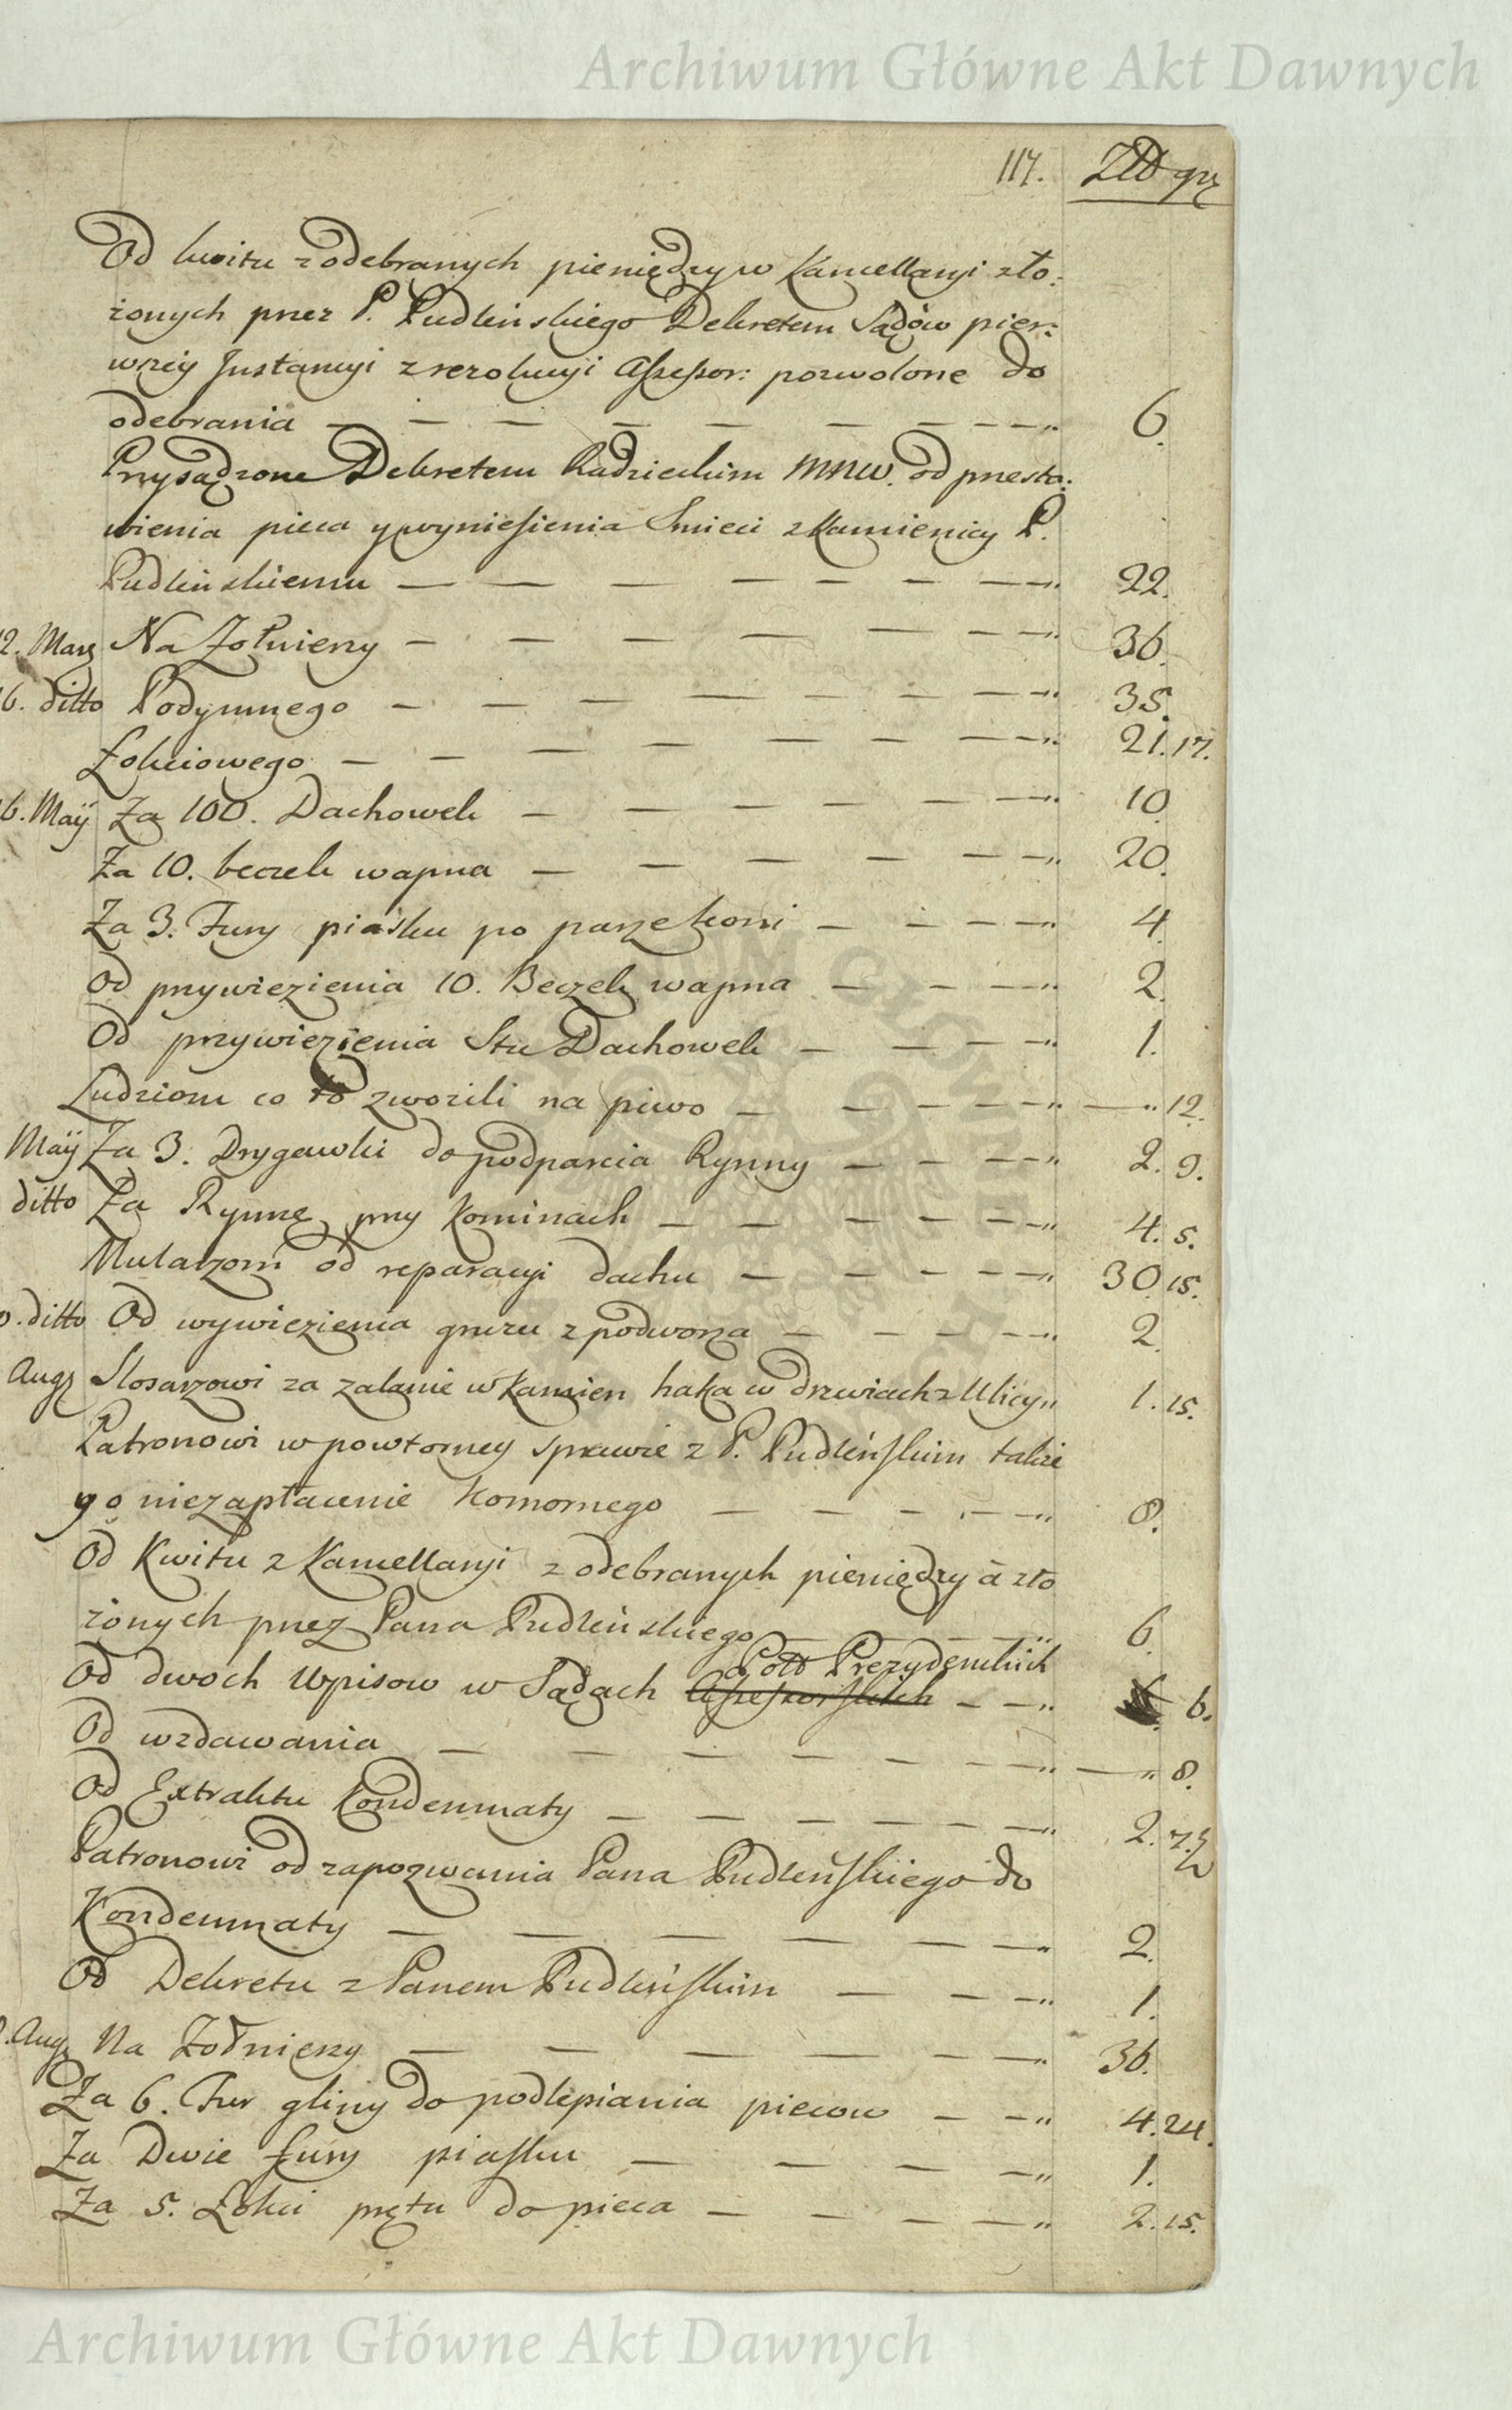 Archiwum Główne Akt Dawnych
117. Złł gr
Od kwitu z odebranych pieniędzy w Kancellaryi zło:
żonych przez P. Pudleńskiego Dekretem Sądów pier:
wszéy Jnstancyi z rezolucyi Assessor: pozwolone do
odebrania — — — — — — — — — „ 6.
Przysądzone Dekretem Radzieckim MNW. od przesta:
wienia pieca y wyniesienia Smieci z Kamienicy P.
Pudleńskiemu — — — — — — — — „ 22.
12. Marz Na Żołnierzy — — — — — — — „ 36.
16. ditto Podymnego — — — — — — — — „ 35.
Łokciowego — — — — — — — — „ 21. 17.
16. Maÿ Za 100. Dachowek — — — — — — „ 10.
Za 10. beczek wapna — — — — — — „ 20.
Za 3. Fury piasku po parze koni — — — — „ 4.
Od przywiezienia 10. Beczek wapna — — — „ 2.
Od przywiezienia Stu Dachowek — — — — „ 1.
Ludziom co to zwozili na piwo — — — — — „ — „ 12.
Maÿ Za 3. Drygawki do podparcia Rynny — — — — „ 2. 9.
ditto Za Rynnę przy Kominach — — — — — — „ 4. 5.
Mularzom od reparacyi dachu — — — — — „ 30. 15.
ditto Od wywiezienia gruzu z podworza — — — — — „ 2.
Augs Slosarzowi za zalanie w Kamien haka w drzwiach z Ulicy „ 1. 15.
Patronowi w powtorney sprawie z P. Pudleńskim także
go niezapłacenie komornego — — — — — „ 8.
Od Kwitu z Kancellaryi z odebranych pieniędzy à zło
żonych przez Pana Pudleńskiego — — — „ 6.
Pott Prezydenckich
Od dwoch Wpisow w Sądach Assessorskich — — „ 6.
Od wzdawania — — — — — — — — „ — „ 8.
Od Extraktu Kondemnaty — — — — — — „ 2. 7½
Patronowi od zapozwania Pana Pudleńskiego do
Kondemnaty — — — — — — „ 2.
Od Dekretu z Panem Pudleńskim — — — „ 1.
Aug Na Żołnierzy — — — — — — „ 36.
Za 6. Fur gliny do podlepiania piecow — — „ 4. 24.
Za Dwie fury piasku — — — — „ 1.
Za 5. Łokci prętu do pieca — — — — „ 2. 15.
Archiwum Główne Akt Dawnych